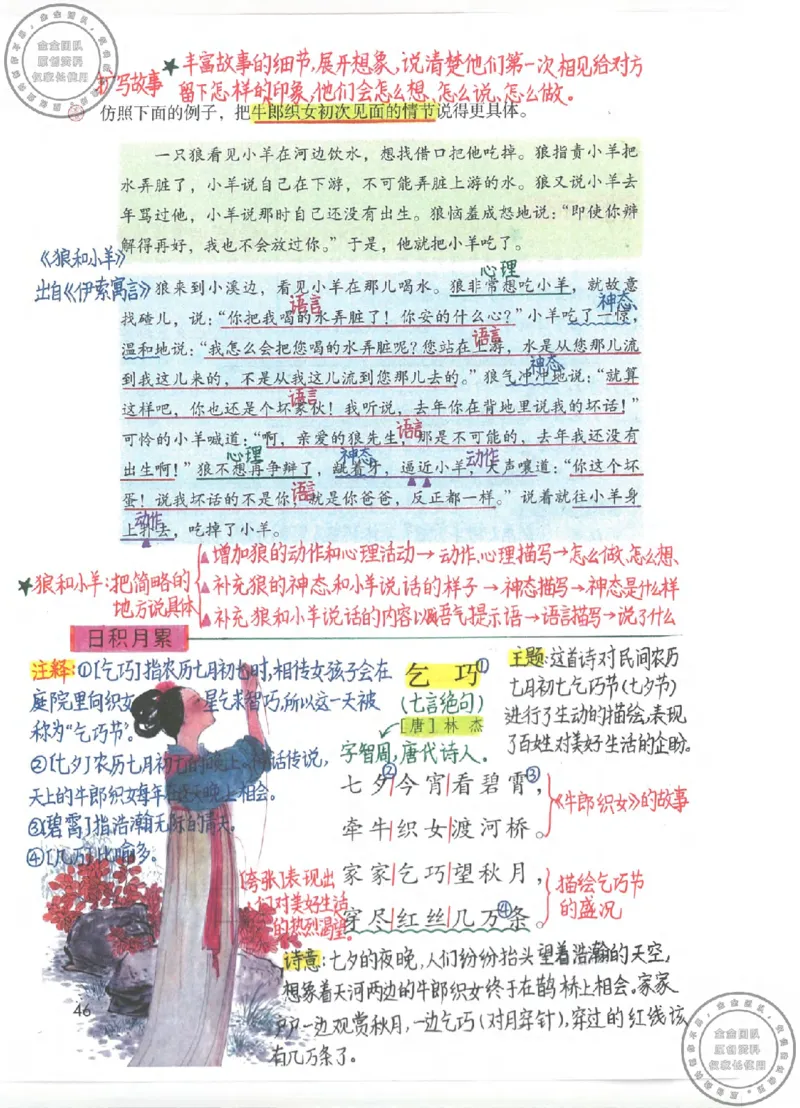 金金团队
原创资料
仅家长使用
扩写故事
★丰富故事的细节,展开想象,说清楚他们第一次相见给对方
留下怎样的印象,他们会怎么想、怎么说、怎么做。
仿照下面的例子，把牛郎织女初次见面的情节说得更具体。
一只狼看见小羊在河边饮水，想找借口把他吃掉。狼指责小羊把
水弄脏了，小羊说自己在下游，不可能弄脏上游的水。狼又说小羊去
年骂过他，小羊说那时自己还没有出生。狼恼羞成怒地说：“即使你辩
解得再好，我也不会放过你。”于是，他就把小羊吃了。
《狼和小羊》
出自《伊索寓言》
心理
狼来到小溪边，看见小羊在那儿喝水。狼非常想吃小羊，就故意
语言
神态
找碴儿，说：“你把我喝的水弄脏了！你安的什么心？”小羊吃了一惊，
语言
温和地说：“我怎么会把您喝的水弄脏呢？您站在上游，水是从您那儿流
神态
到我这儿来的，不是从我这儿流到您那儿去的。”狼气冲冲地说：“就算
语言
这样吧，你也还是个坏家伙！我听说，去年你在背地里说我的坏话！”
语言
可怜的小羊喊道：“啊，亲爱的狼先生，那是不可能的，去年我还没有
心理
神态
动作
出生啊！”狼不想再争辩了，龇着牙，逼近小羊，大声嚷道：“你这个坏
语言
蛋！说我坏话的不是你，就是你爸爸，反正都一样。”说着就往小羊身
动作
上扑去，吃掉了小羊。
★狼和小羊:把简略的
地方说具体
▲增加狼的动作和心理活动→动作、心理描写→怎么做、怎么想、
▲补充狼的神态和小羊说话的样子→神态描写→神态是什么样
▲补充狼和小羊说话的内容以及语气提示语→语言描写→说了什么
日积月累
注释:①[乞巧]指农历七月初七时,相传女孩子会在
庭院里向织女星乞求智巧,所以这一天被
称为“乞巧节”。
②[七夕]农历七月初七的晚上。神话传说,
天上的牛郎织女每年在这天晚上相会。
③[碧霄]指浩瀚无际的青天。
④[几万]比喻多。
乞巧①
(七言绝句)
[唐]林杰
字智周,唐代诗人。
主题:这首诗对民间农历
七月初七乞巧节(七夕节)
进行了生动的描绘,表现
了百姓对美好生活的企盼。
七夕②|今宵|看碧霄③，
牵牛|织女|渡河桥。
《牛郎织女》的故事
家家|乞巧|望秋月，
穿尽|红丝|几万④条。
描绘乞巧节
的盛况
[夸张]表现出
人们对美好生活
的热烈渴望。
诗意:七夕的夜晚,人们纷纷抬头望着浩瀚的天空,
想象着天河两边的牛郎织女终于在鹊桥上相会。家家
户户一边观赏秋月,一边乞巧(对月穿针),穿过的红线该
有几万条了。
46
金金团队
原创资料
仅家长使用